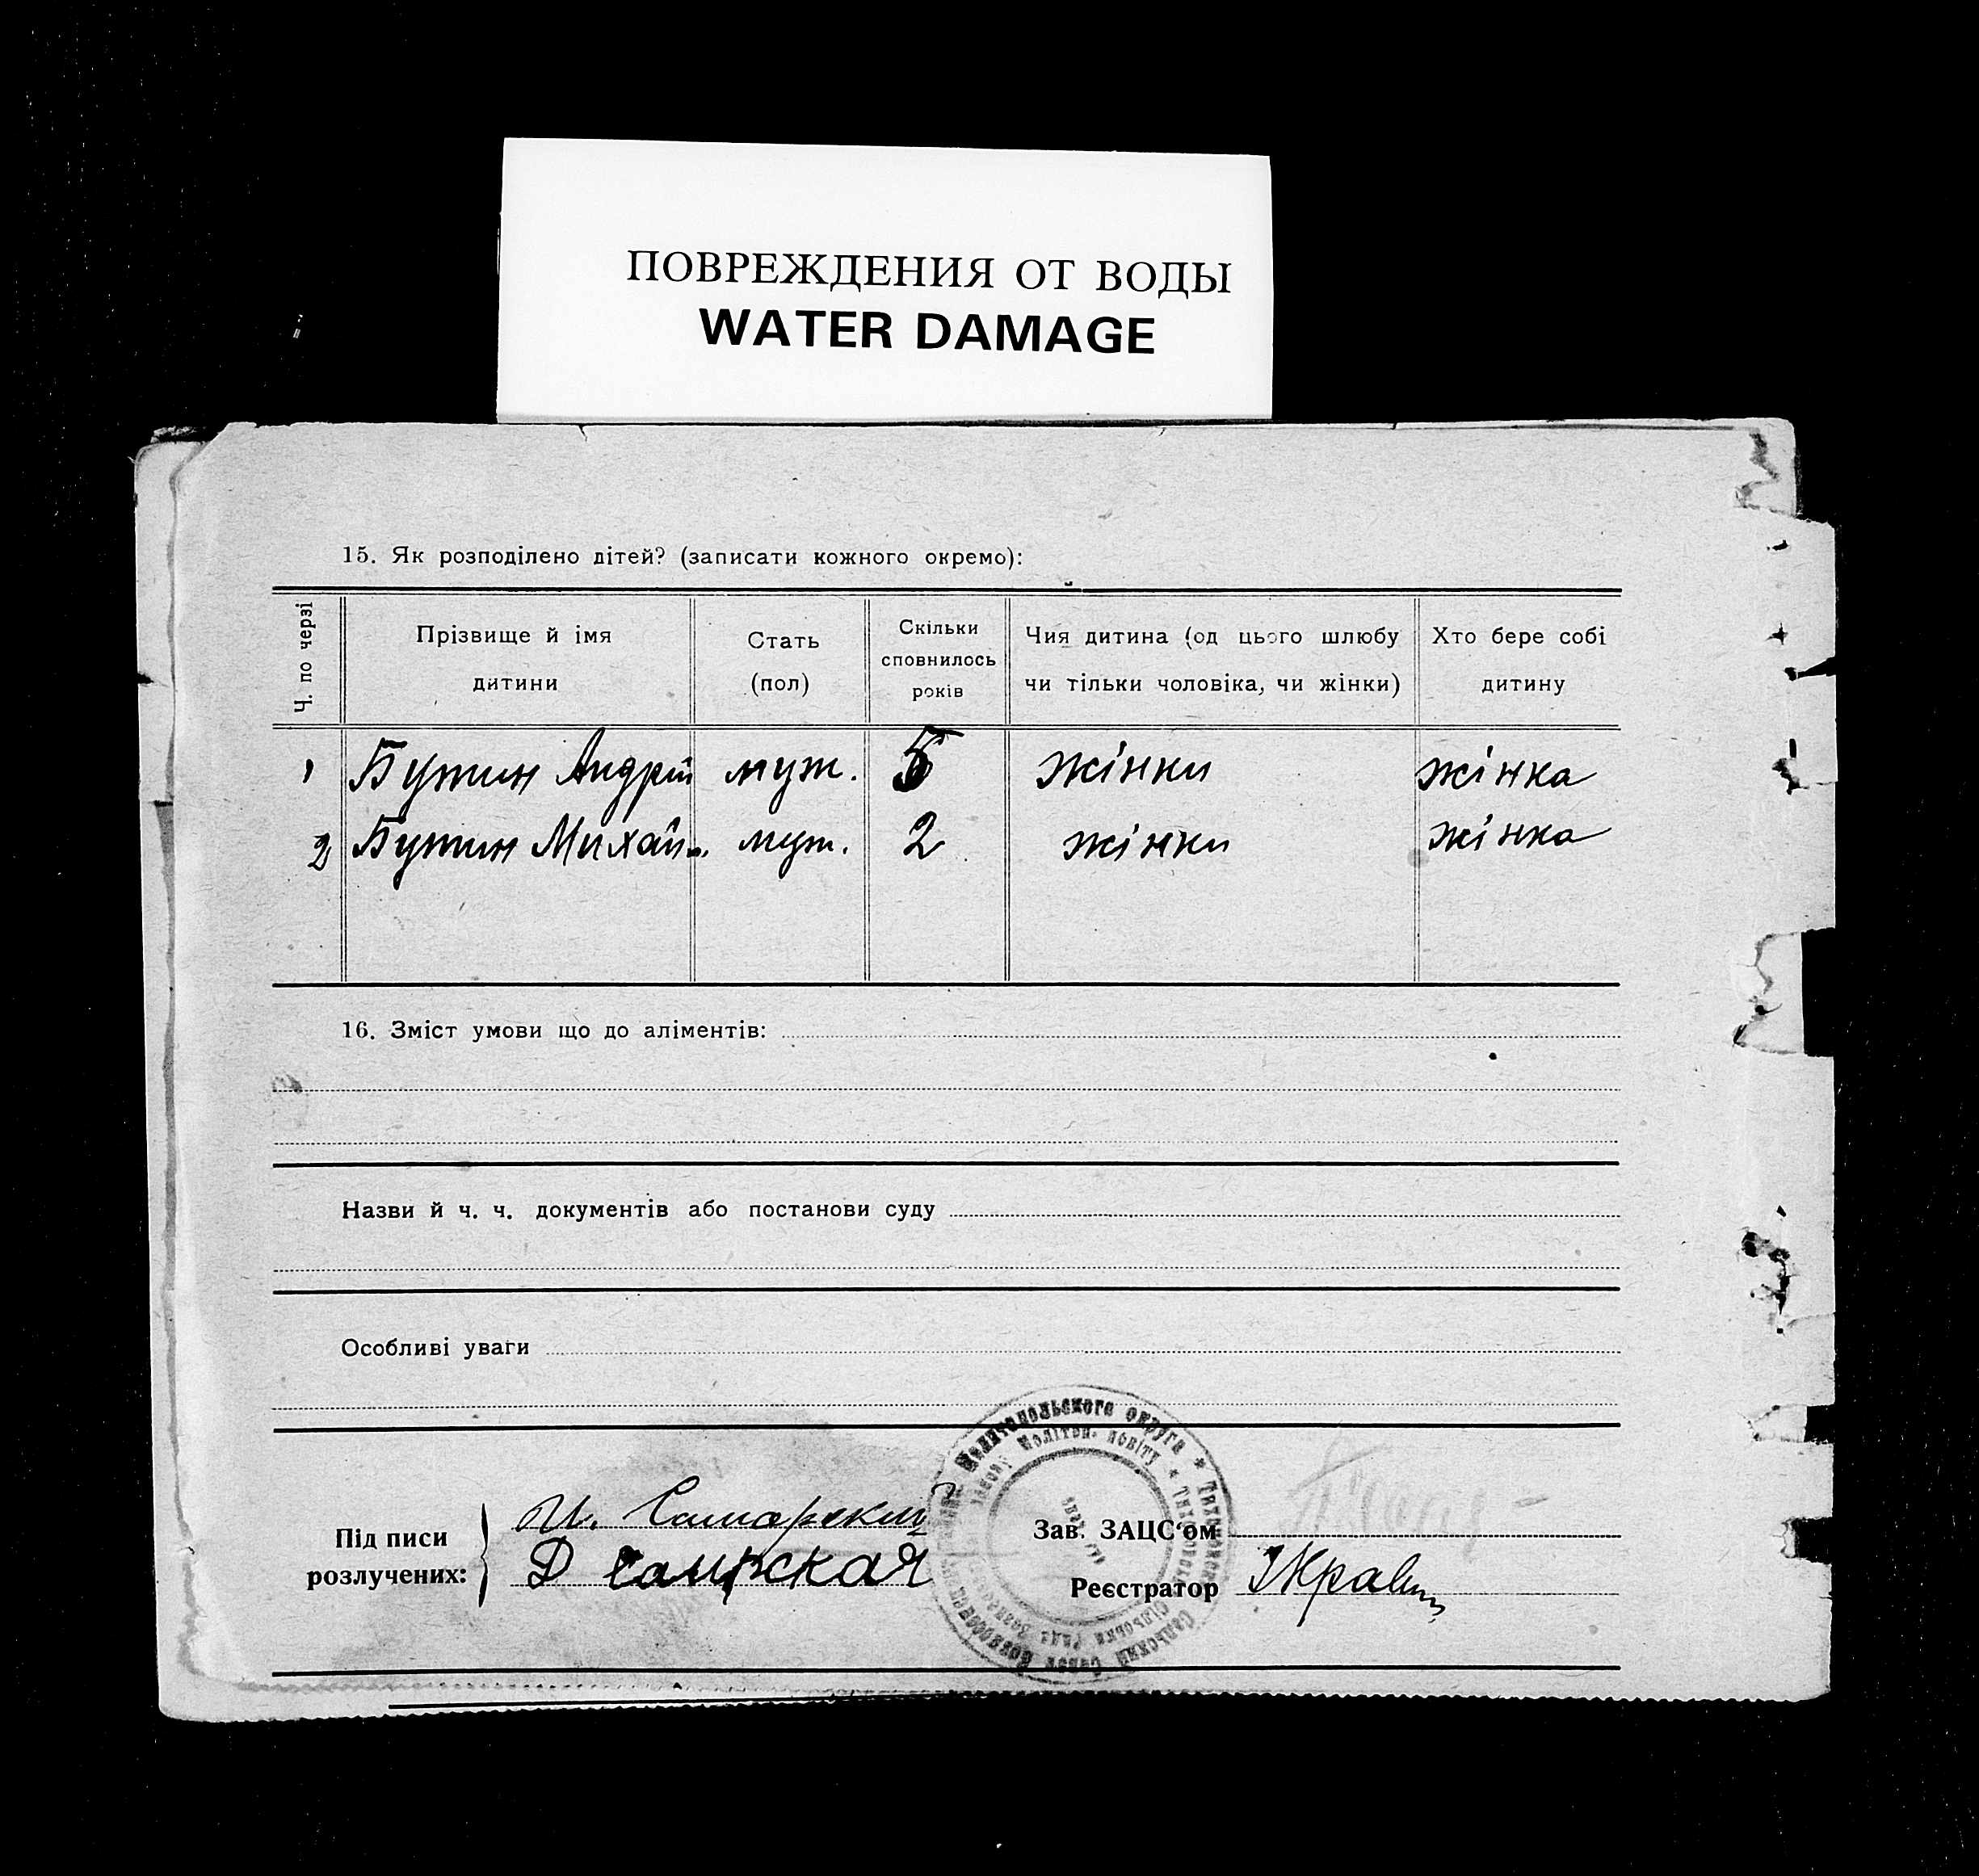 ПОВРЕЖДЕНИЯ ОТ ВОДЫ
WATER DAMAGE
15. Як розподілено дітей? (записати кожного окремо):
Ч. по черзі
Прізвище й імя
дитини
Стать
(пол)
Скільки
сповнилось
років
Чия дитина (од цього шлюбу
чи тільки чоловіка, чи жінки)
Хто бере собі
дитину
1 Бутин Андрій муж. 5 жінки жінка
2 Бутин Михайл. муж. 2 жінки жінка
16. Зміст умови що до аліментів:
Назви й ч. ч. документів або постанови суду
Особливі уваги
Під писи
розлучених:
И. Самарский
Д Самрская
Зав. ЗАЦС'ом
Реєстратор Кравец
Мелитопольского округа * Тихоновский Сельский Совет Вознесенск
Мелітоп. повіту * Тихонівська Сільська Рада